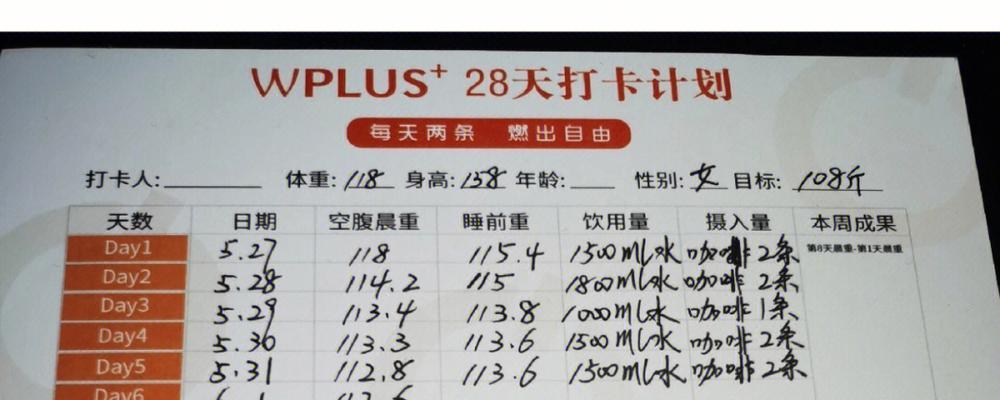 WPLUS+ 28天打卡计划
每天两条 燃出自由
打卡人: 体重: 118 身高: 158 年龄: 性别: 女 目标: 108斤
天数 日期 空腹晨重 睡前重 饮用量 摄入量 本周成果
Day1 5.27 118 115.4 1500ml水 咖啡2条 第8天晨重-第1天晨重
Day2 5.28 114.2 115 1800ml水 咖啡 2条
Day3 5.29 113.4 113.8 1000ml水 咖啡 1条
Day4 5.30 113.3 113.6 1500ml水 咖啡 2条
Day5 5.31 112.8 113.6 1500ml水 咖啡 2条
Day6